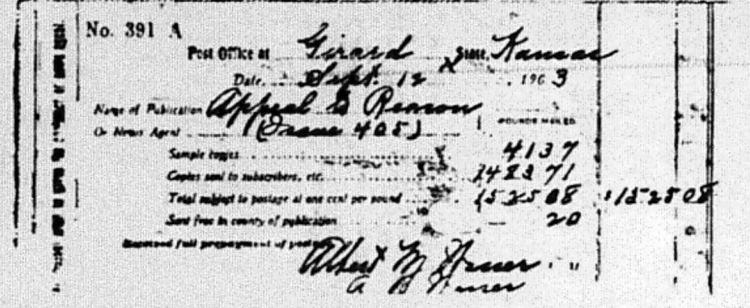 No. 391 A
Post Office at Girard State, Kansas
Date, Sept. 12 1903
Name of Publication Appeal to Reason
Or News Agent (Issue 405) POUNDS MAILED
Sample copies 4137
Copies sent to subscribers, etc. 148371
Total subject to postage at one cent per pound 152508 $1525 08
Sent free in county of publication 20
Received full prepayment of
Albert M
A B